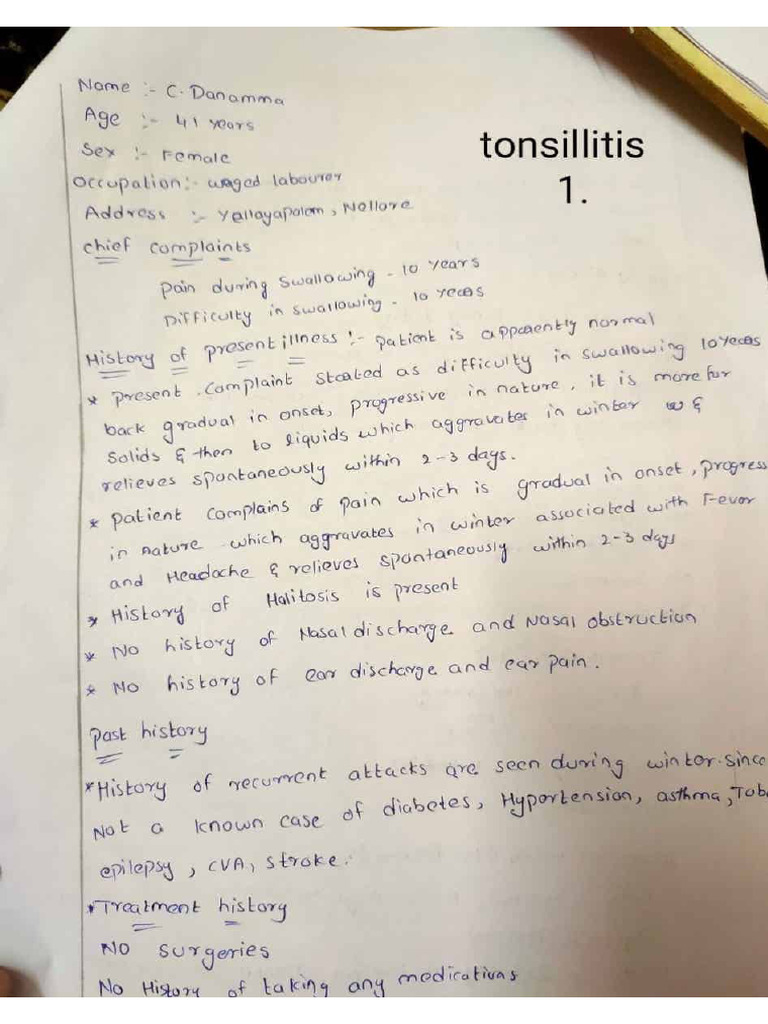 Name :- C. Danamma
Age :- 41 years
Sex :- Female
Occupation:- waged labourer
Address :- Yallayapalem, Nellore
tonsillitis
1.
Chief complaints
Pain during swallowing - 10 years
Difficulty in swallowing - 10 years
History of present illness :- patient is apparently normal
* present complaint started as difficulty in swallowing 10 years
back gradual in onset, progressive in nature, it is more for
Solids & then to liquids which aggravates in winter &
relieves spontaneously within 2-3 days.
* patient complains of pain which is gradual in onset, progress
in nature which aggravates in winter associated with Fever
and Headache & relieves spontaneously within 2-3 days
* History of Halitosis is present
* No history of Nasal discharge and Nasal obstruction
* No history of ear discharge and ear pain.
Past history
*History of recurrent attacks are seen during winter since
Not a known case of diabetes, Hyportension, asthma, Tub
epilepsy, CVA, stroke.
*Treatment history
NO surgeries
No History of taking any medications